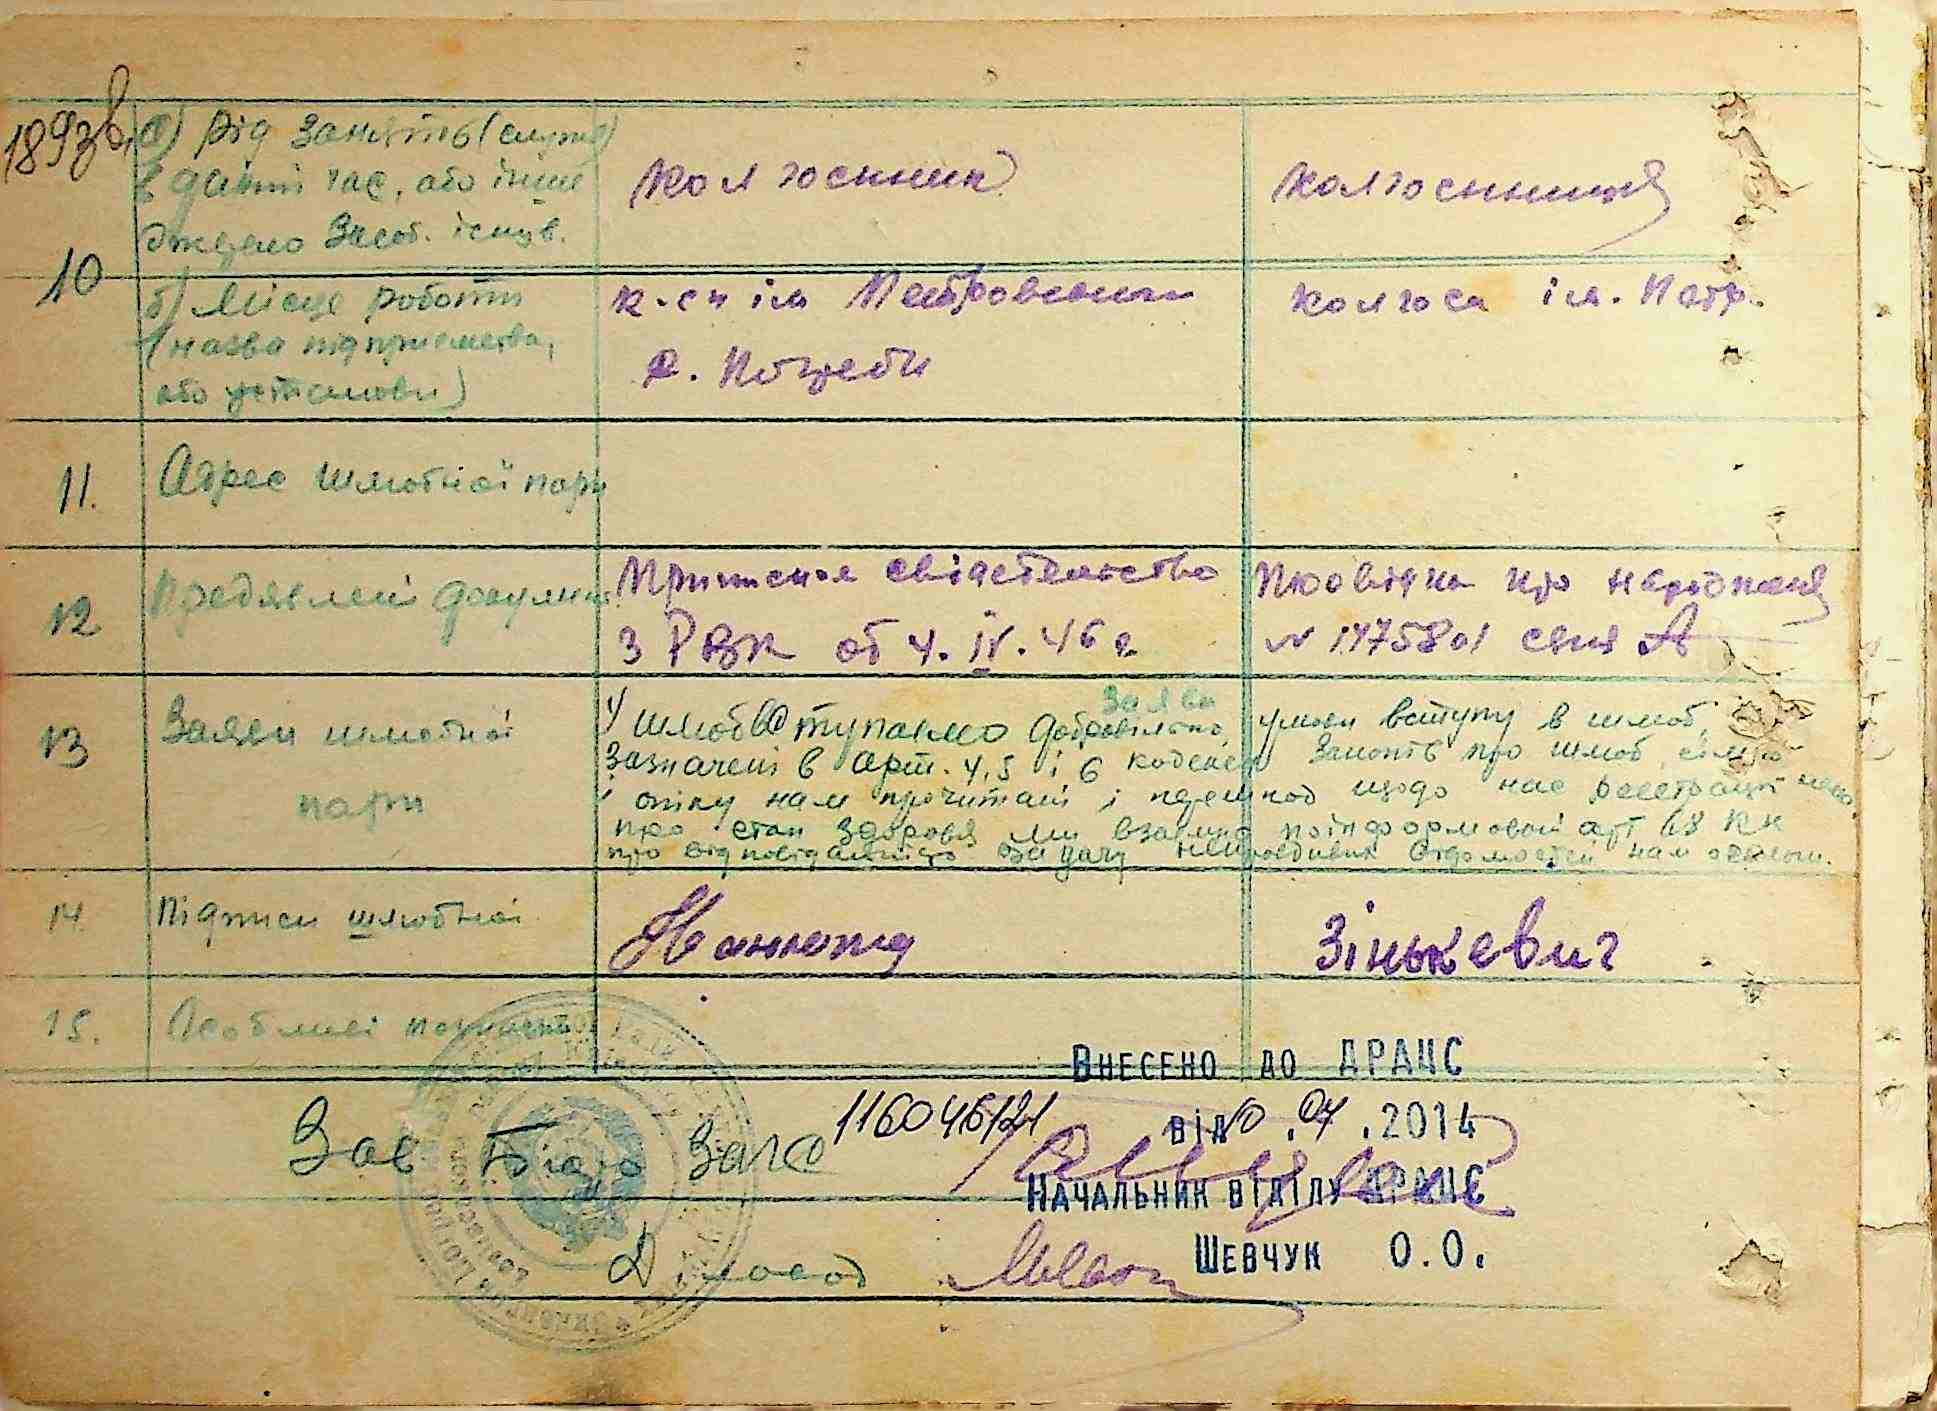 1893
а) Рід занять (служ)
в даний час, або інше
джерело засоб. існув.
колгоспник
колгоспниця
10
б) Місце роботи
(назва підприємства,
або установи)
к-сп ім Петровського
с. Погреби
колгосп ім. Петр.
11. Адрес шлюбної пари
12 Предявлені докумен
Приписное свідетельство
з РВК от 4. IV. 46 г
про народження
№ 1775801 серія А
13 Заяви шлюбної
пари
Заява
У шлюб вступаємо добровільно, умови вступу в шлюб,
зазначені в арт. 4, 5 і 6 кодексу Законів про шлюб, сімю
і опіку нам прочитані і перешкод щодо нас реєстрації нема
про стан здоровя ми взаємно поінформовані арт 68 КК
про відповідальність за дачу неправдивих відомостей нам оголош.
14. Підписи шлюбної
Зінькевич
15. Особливі
Внесено до ДРАЦС
116046121
від 10.04.2014
Зав Бюро Загс
Начальник відділу ДРАЦС
Діловод
Шевчук О.О.